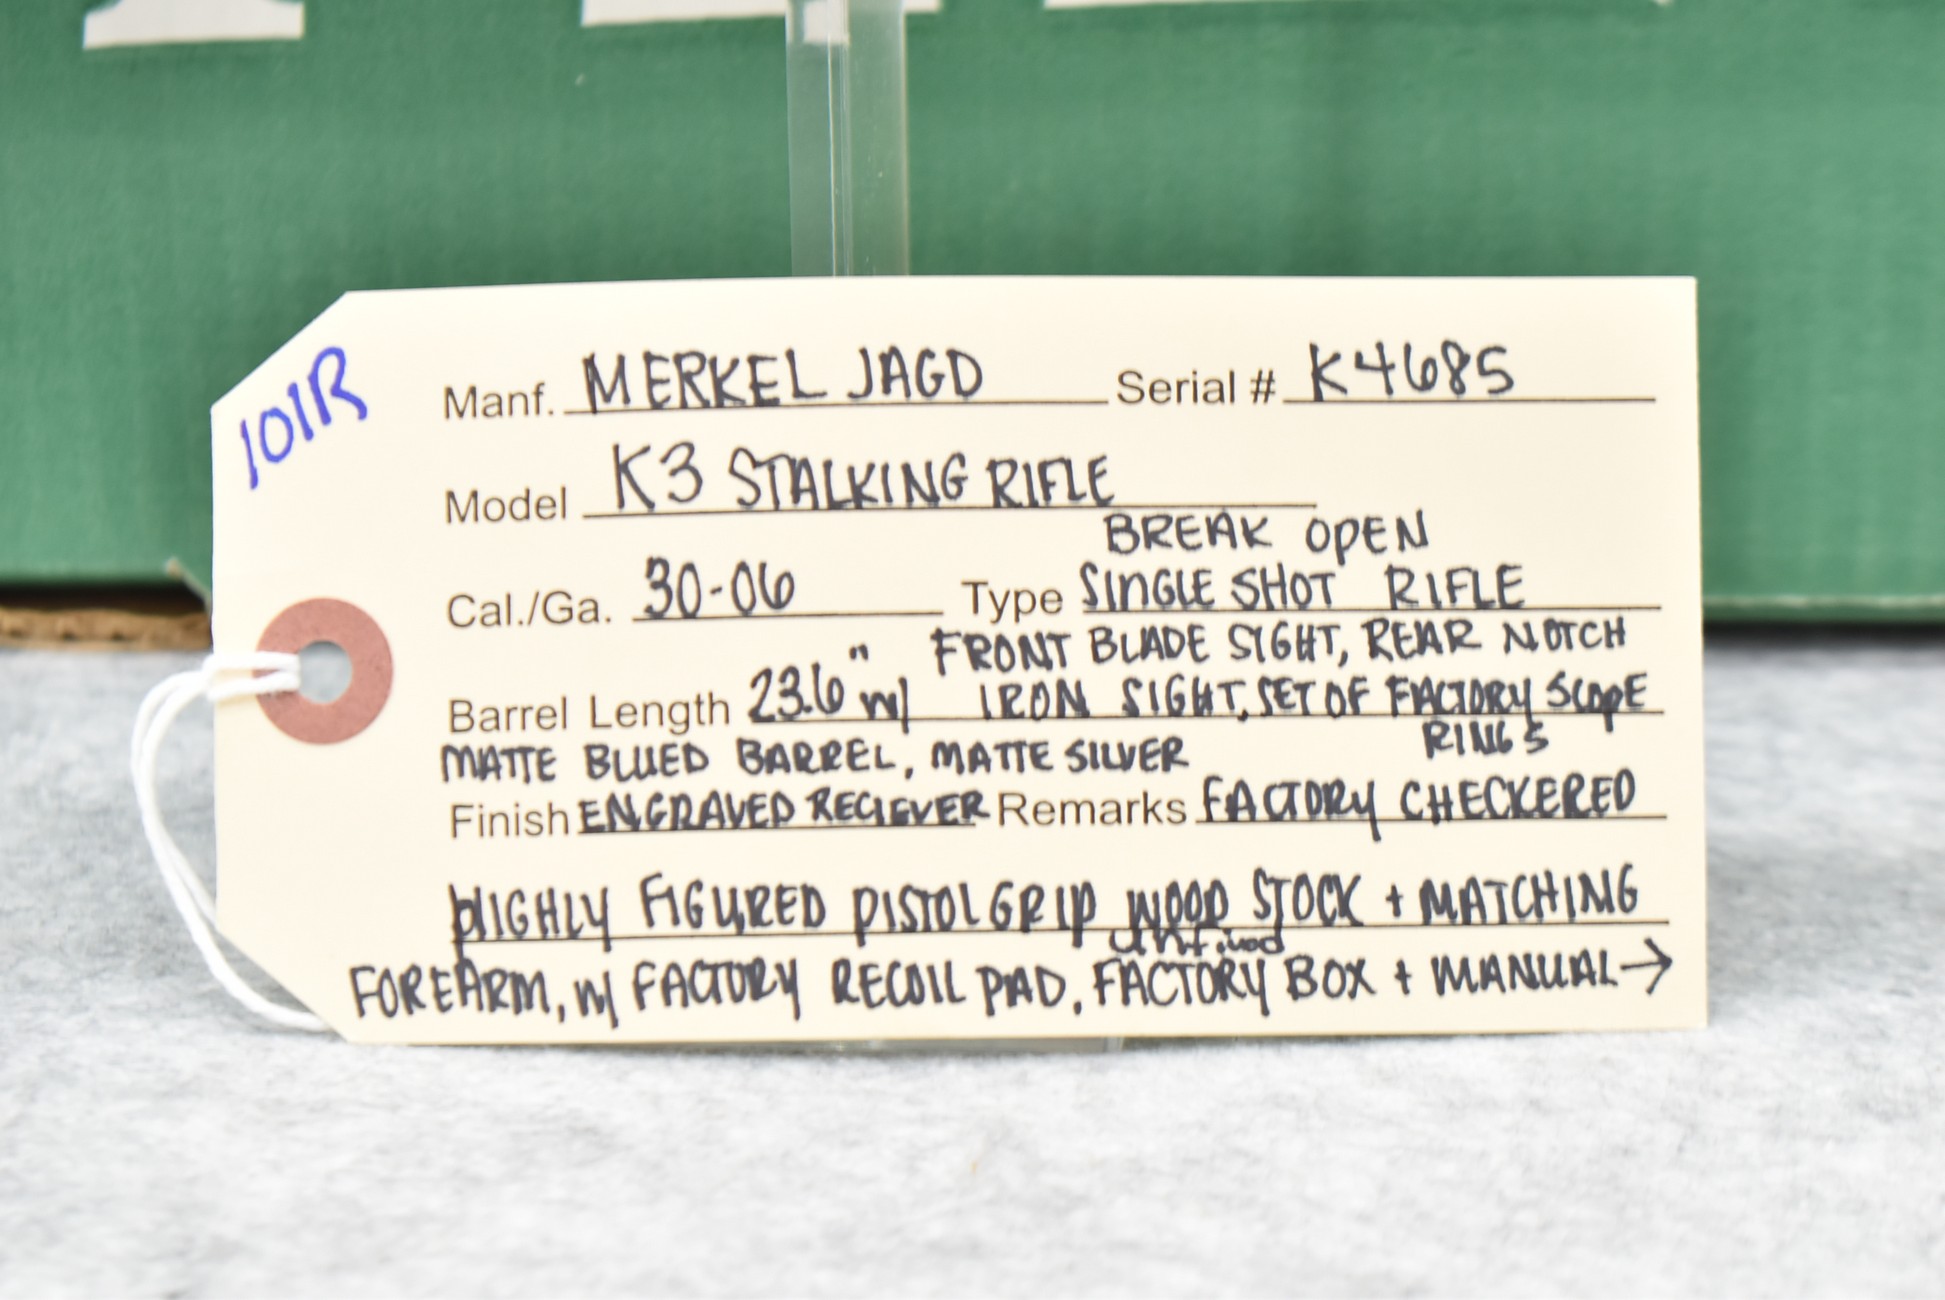 101R
Manf. MERKEL JAGD Serial # K4685
Model K3 STALKING RIFLE
BREAK OPEN
Cal./Ga. 30-06 Type SINGLE SHOT RIFLE
FRONT BLADE SIGHT, REAR NOTCH
Barrel Length 23.6" w/ IRON SIGHT, SET OF FACTORY SCOPE
RINGS
MATTE BLUED BARREL, MATTE SILVER
Finish ENGRAVED RECIEVER Remarks FACTORY CHECKERED
HIGHLY FIGURED PISTOL GRIP WOOD STOCK + MATCHING
unfired
FOREARM, w/ FACTORY RECOIL PAD, FACTORY BOX + MANUAL →